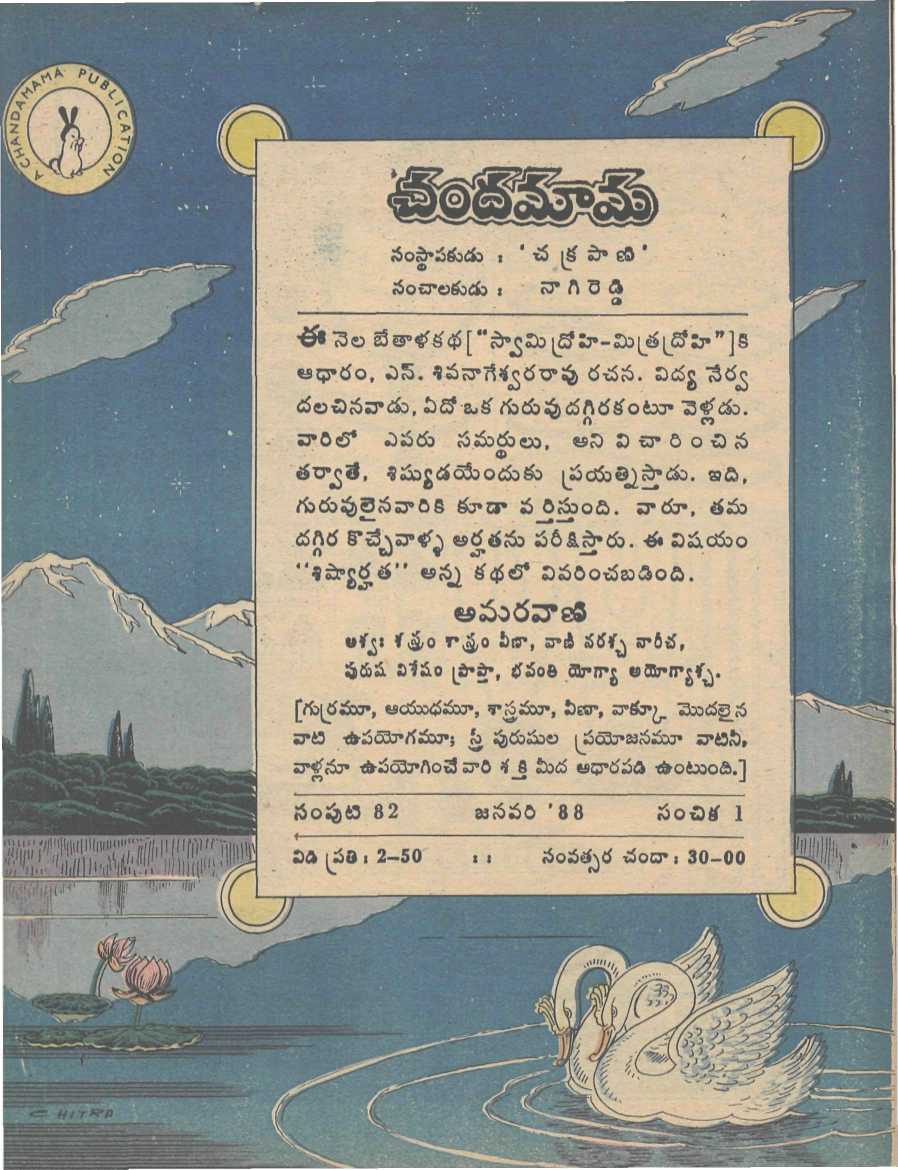 A CHANDAMAMA PUBLICATION
చందమామ
సంస్థాపకుడు : 'చక్రపాణి'
సంచాలకుడు : నాగిరెడ్డి
ఈ నెల బేతాళకథ ["స్వామిద్రోహి-మిత్రద్రోహి"]కి
ఆధారం, ఎన్. శివనాగేశ్వరరావు రచన. విద్య నేర్వ
దలచినవాడు, ఏదో ఒక గురువుదగ్గిరకంటూ వెళ్లడు.
వారిలో ఎవరు సమర్థులు, అని విచారించిన
తర్వాతే, శిష్యుడయేందుకు ప్రయత్నిస్తాడు. ఇది,
గురువులైనవారికి కూడా వర్తిస్తుంది. వారూ, తమ
దగ్గిర కొచ్చేవాళ్ళ అర్హతను పరీక్షిస్తారు. ఈ విషయం
"శిష్యార్హత" అన్న కథలో వివరించబడింది.
అమరవాణి
అశ్వః శస్త్రం శాస్త్రం వీణా, వాణీ నరశ్చ నారీచ,
పురుష విశేషం ప్రాప్తా, భవంతి యోగ్యా అయోగ్యాశ్చ.
[గుర్రమూ, ఆయుధమూ, శాస్త్రమూ, వీణా, వాక్కూ మొదలైన
వాటి ఉపయోగమూ; స్త్రీ పురుషుల ప్రయోజనమూ వాటినీ,
వాళ్లనూ ఉపయోగించే వారి శక్తి మీద ఆధారపడి ఉంటుంది.]
సంపుటి 82 జనవరి '88 సంచిక 1
విడి ప్రతి : 2-50 :: సంవత్సర చందా : 30-00
CHITRA